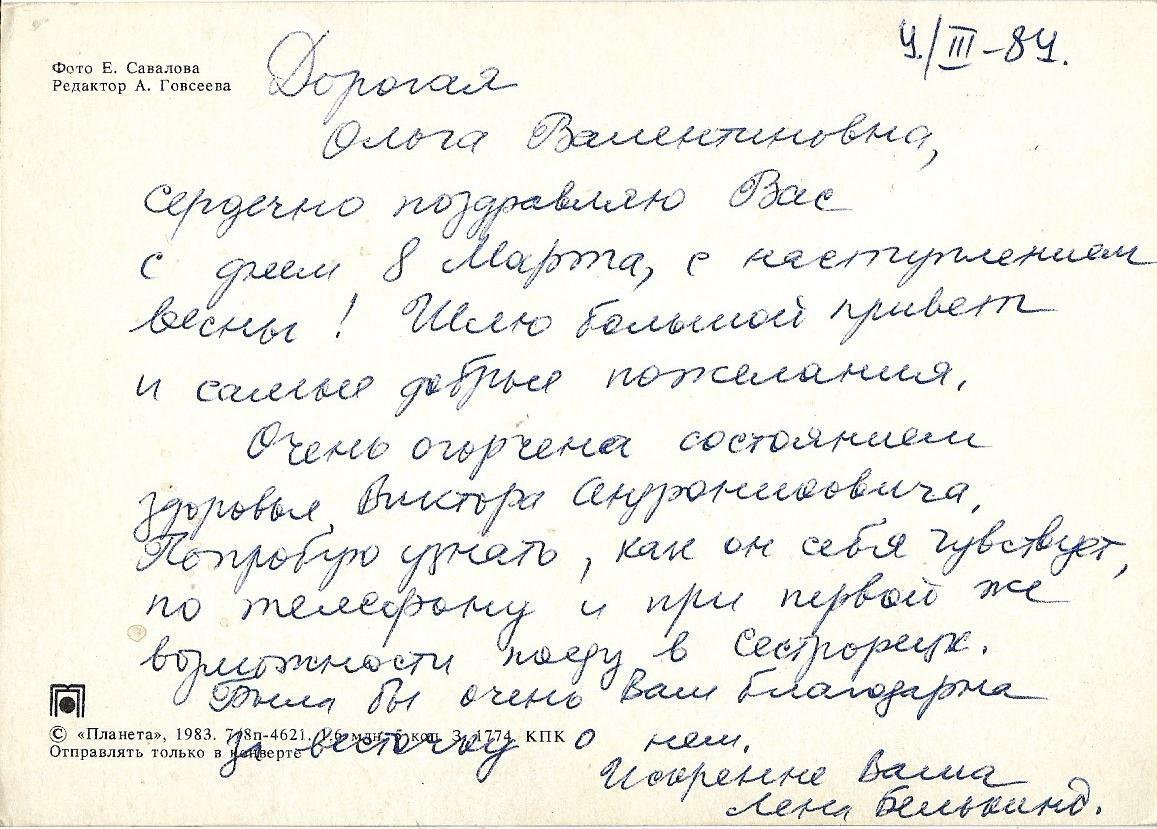 4./III-84.
Фото Е. Савалова
Редактор А. Говсеева
Дорогая
Ольга Валентиновна,
сердечно поздравляю Вас
с днем 8 Марта, с наступлением
весны! Шлю большой привет
и самые добрые пожелания.
Очень огорчена состоянием
здоровья Виктора Андрониковича.
Попробую узнать, как он себя чувствует,
по телефону и при первой же
возможности поеду в Сестрорецк.
Была бы очень Вам благодарна
за весточку о нем.
Искренне Ваша
Лена Белькинд.
© «Планета», 1983. 7/8п-4621. 1,6 млн. 5 коп. З. 1774. КПК
Отправлять только в конверте